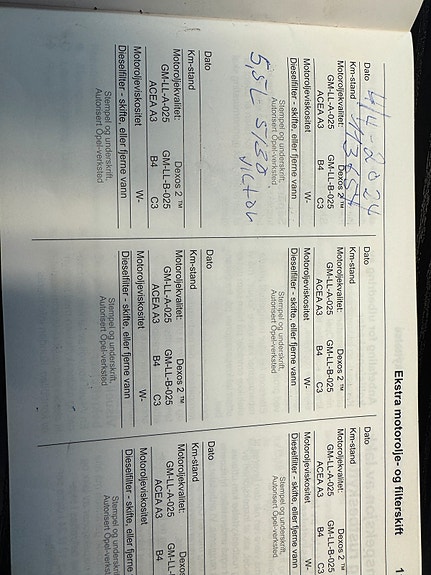 Ekstra motorolje- og filterskift 1
Dato 4/4-2024
Km-stand
Motoroljekvalitet: Dexos 2 ™
GM-LL-A-025 GM-LL-B-025
ACEA A3 B4 C3
Motoroljeviskositet W-
Dieselfilter - skifte, eller fjerne vann
Stempel og underskrift,
Autorisert Opel-verksted
5,5L 5W30
Dato
Km-stand
Motoroljekvalitet: Dexos 2 ™
GM-LL-A-025 GM-LL-B-025
ACEA A3 B4 C3
Motoroljeviskositet W-
Dieselfilter - skifte, eller fjerne vann
Stempel og underskrift,
Autorisert Opel-verksted
Dato
Km-stand
Motoroljekvalitet: Dexos 2
GM-LL-A-025 GM-LL-B
ACEA A3 B4
Motoroljeviskositet
Dieselfilter - skifte, eller fjerne vann
Stempel og underskrift,
Autorisert Opel-verksted
Dato
Km-stand
Motoroljekvalitet: Dexos 2 ™
GM-LL-A-025 GM-LL-B-025
ACEA A3 B4 C3
Motoroljeviskositet W-
Dieselfilter - skifte, eller fjerne vann
Stempel og underskrift,
Autorisert Opel-verksted
Dato
Km-stand
Motoroljekvalitet: Dexos 2 ™
GM-LL-A-025 GM-LL-B-025
ACEA A3 B4 C3
Motoroljeviskositet W-
Dieselfilter - skifte, eller fjerne vann
Stempel og underskrift,
Autorisert Opel-verksted
Dato
Km-stand
Motoroljekvalitet: Dexos 2
GM-LL-A-025 GM-LL-B
ACEA A3 B4
Motoroljeviskositet
Dieselfilter - skifte, eller fjerne
Stempel og underskrift,
Autorisert Opel-verksted